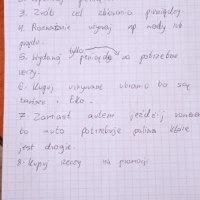 3. Zrób cel zbierania pieniędzy
4. Rozważnie używaj np wody lub
prądu.
5. Wydawaj tylko pieniądze na potrzebne
rzeczy.
6. Kupuj używane ubrania bo są
tańsze i Eko.
7. Zamiast autem jeździj rowerem
bo auto potrzebuje paliwa które
jest drogie.
8. Kupuj rzeczy na promocji.